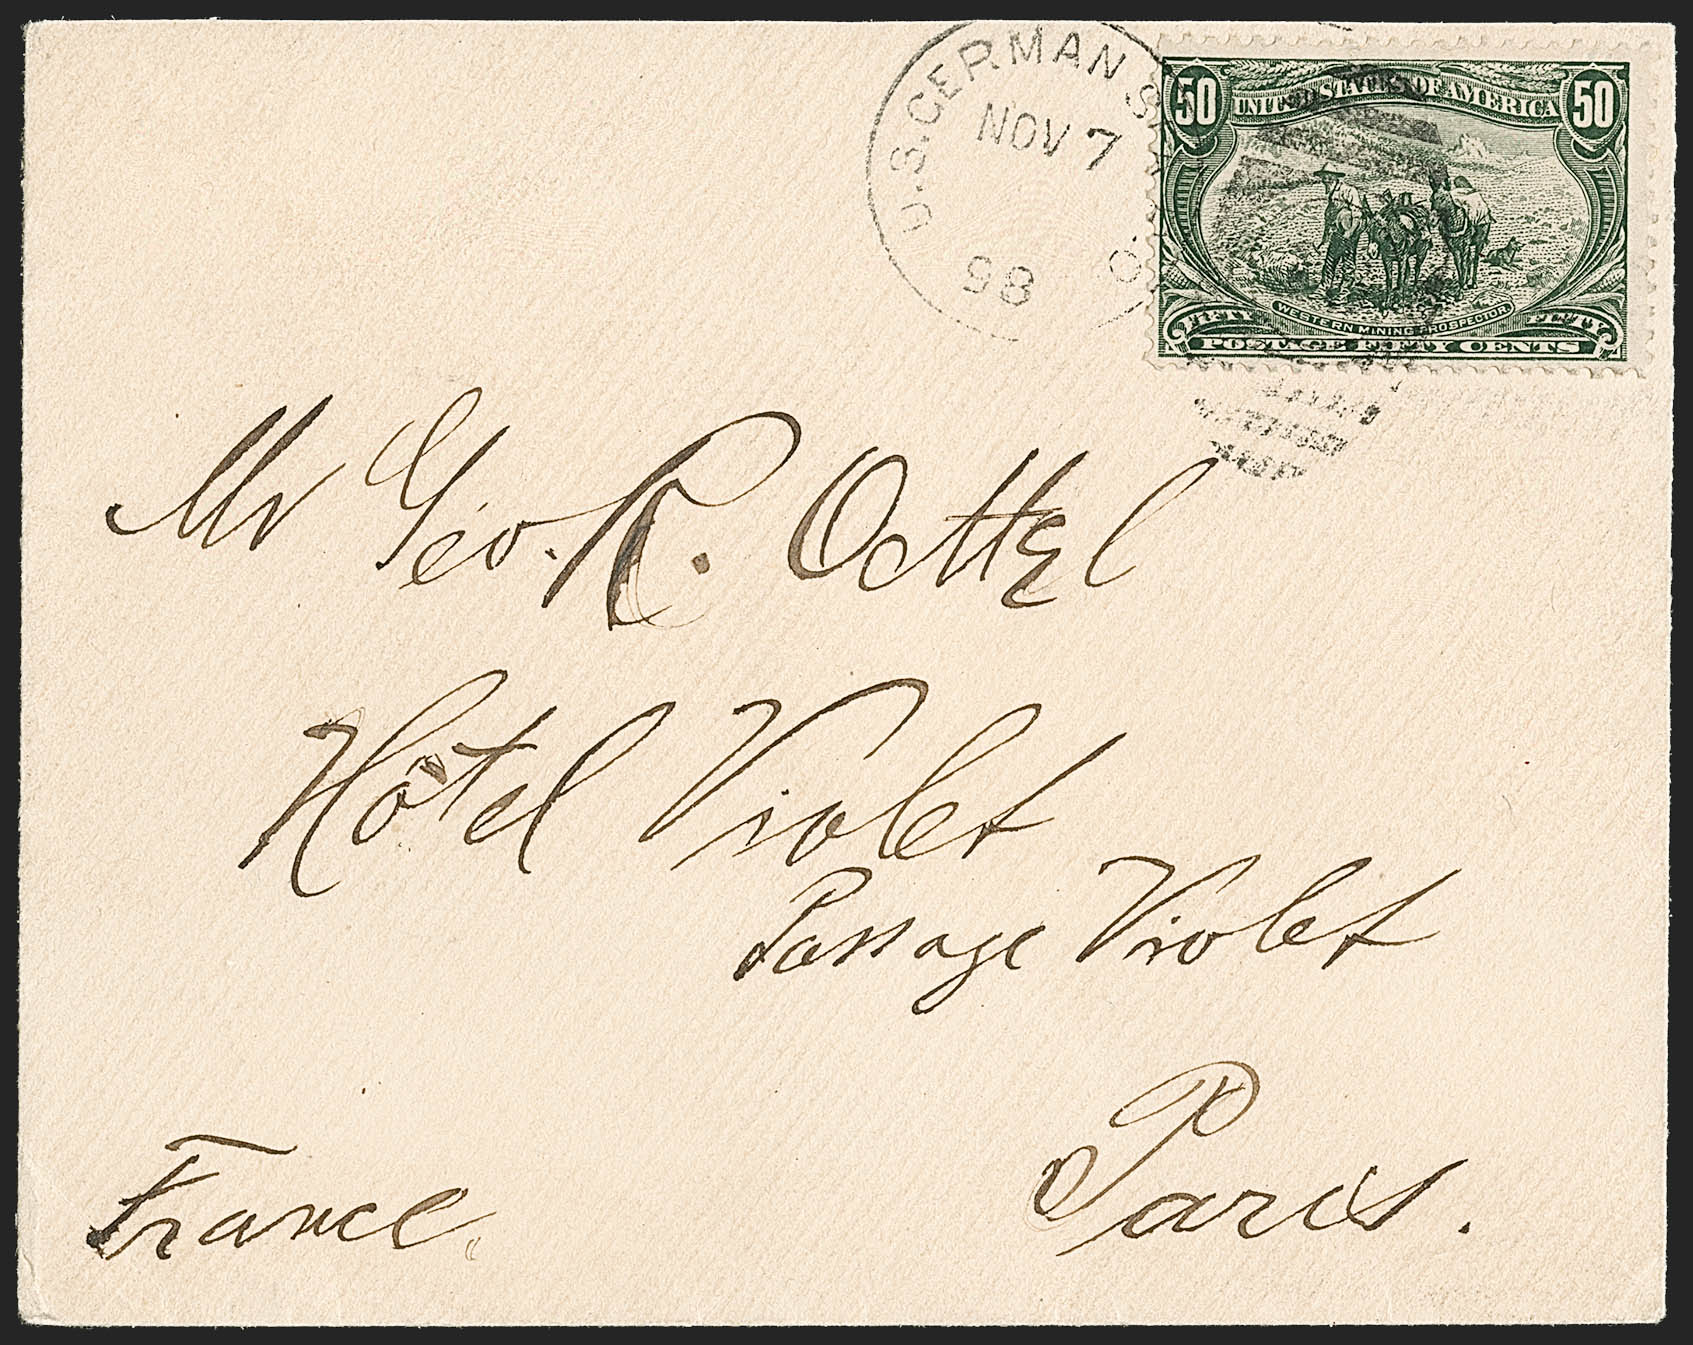 U.S. GERMAN S
NOV 7
98
50 UNITED STATES OF AMERICA 50
WESTERN MINING PROSPECTOR
FIFTY FIFTY
POSTAGE FIFTY CENTS
Mr Geo. R. Oettel
Hôtel Violet
Passage Violet
Paris.
France.